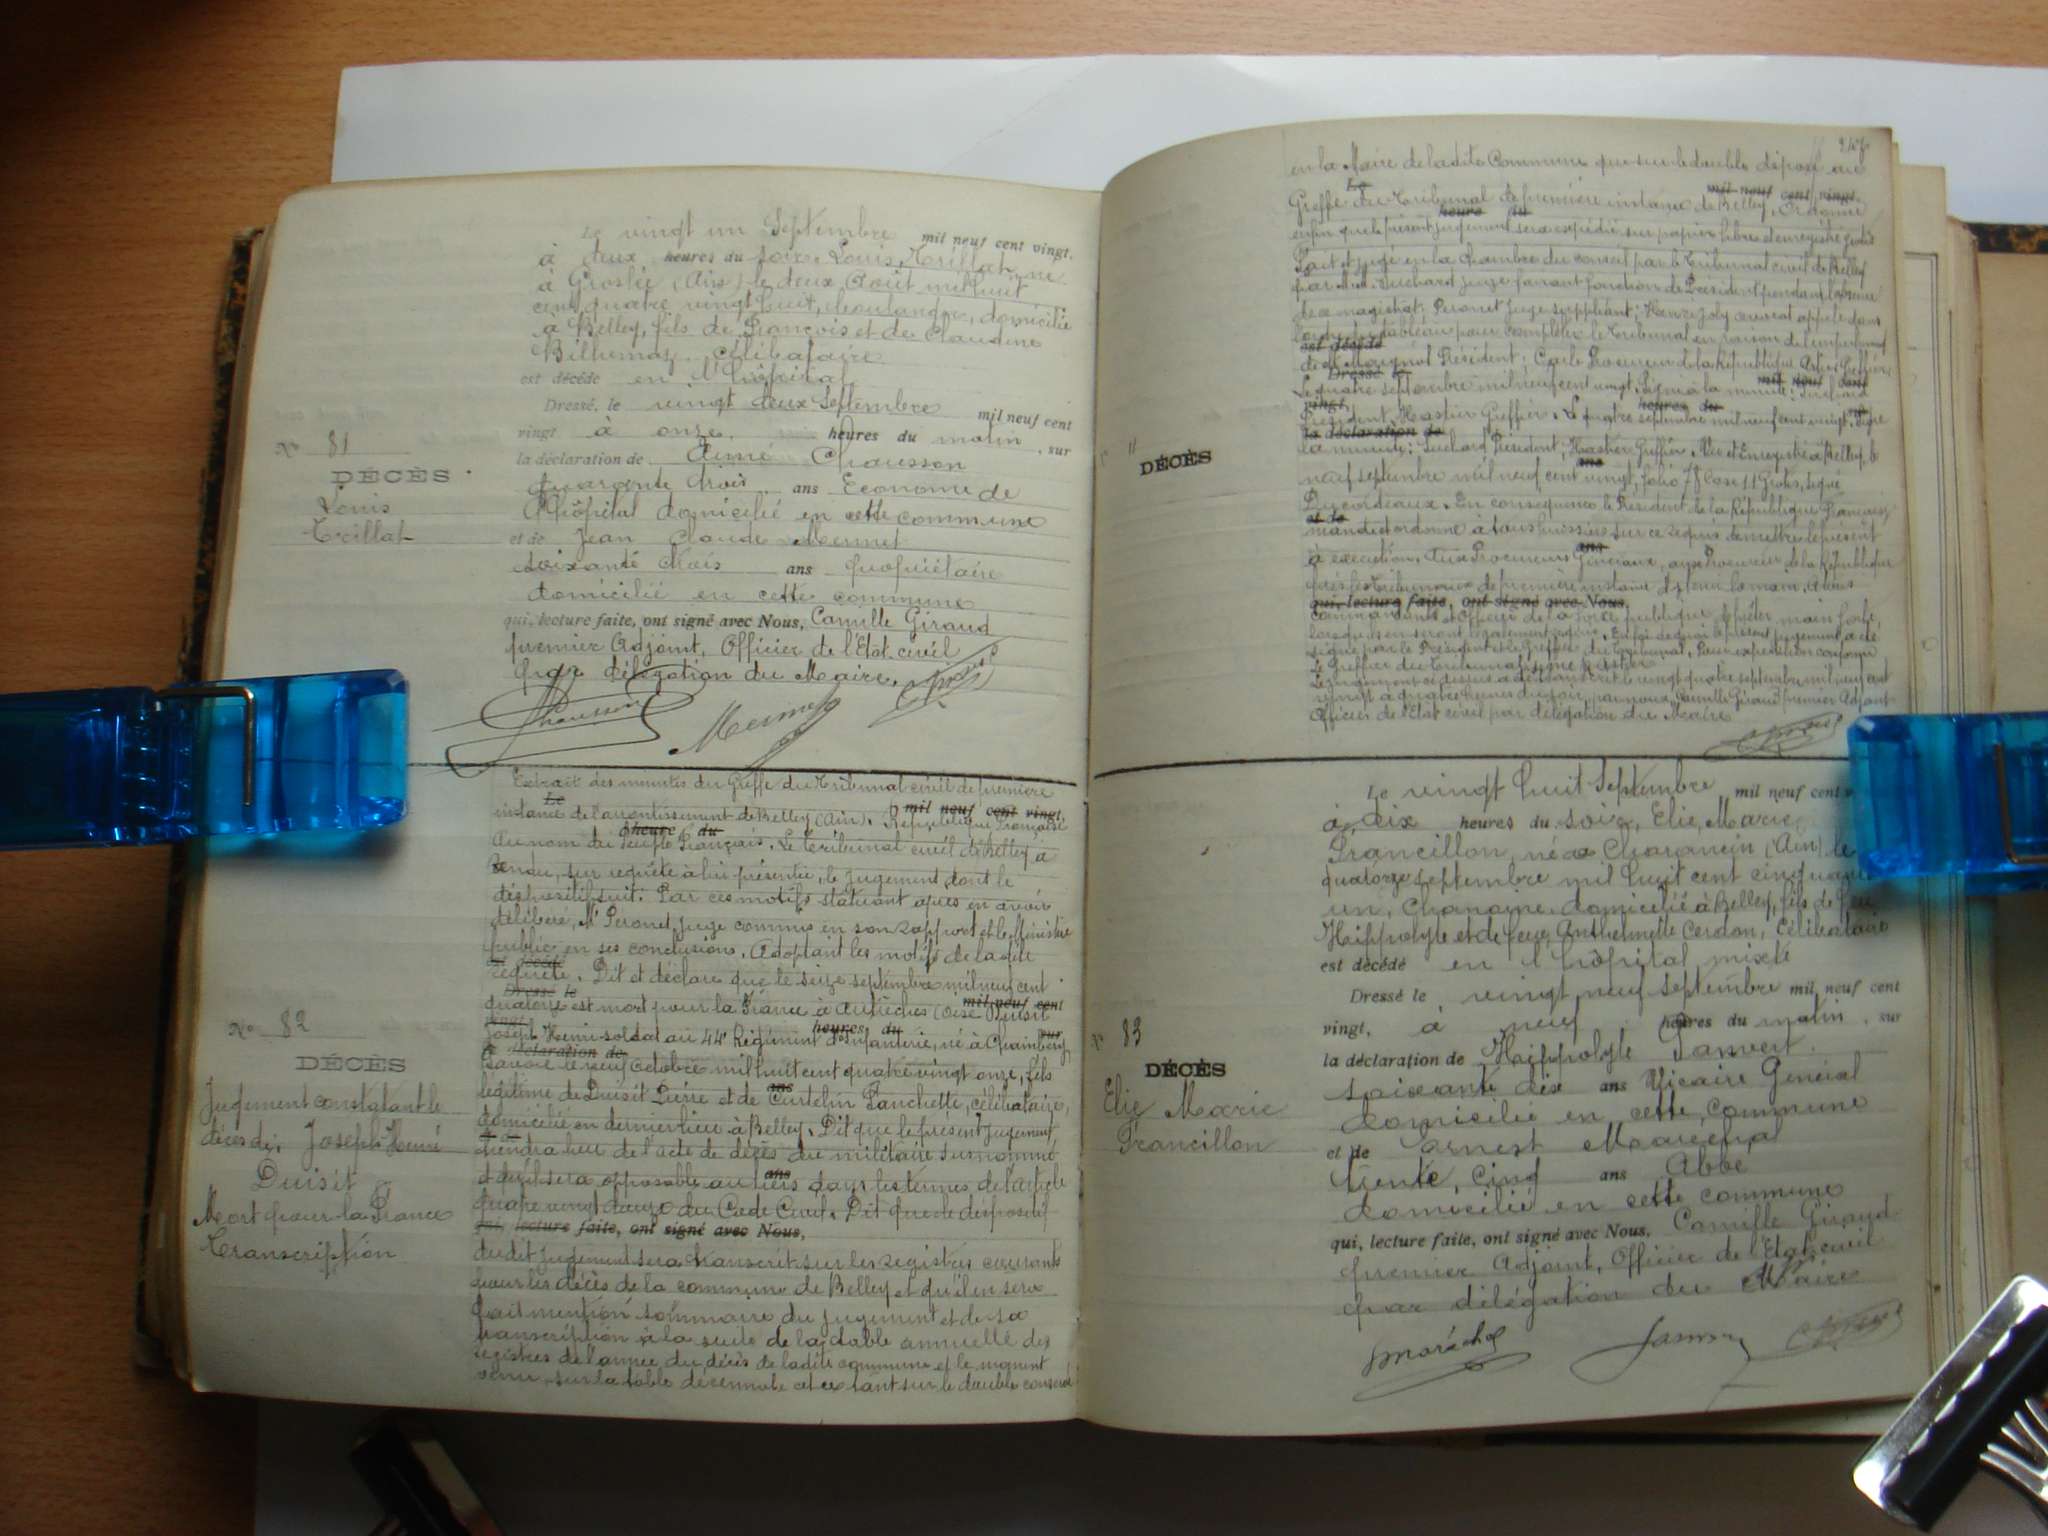 Le vingt un Septembre mil neuf cent vingt,
à deux heures du soir, Louis Trillat, né
à Groslée (Ain) le deux Août mil huit
cent quatre vingt huit, boulanger, domicilié
à Belley, fils de François et de Claudine
célibataire
est décédé en l'hôpital
Dressé, le vingt deux Septembre mil neuf cent
vingt à onze heures du matin, sur
la déclaration de Aimé Chausson
quarante trois ans Econome de
l'hôpital domicilié en cette commune
et de Jean Claude Mermet
soixante trois ans propriétaire
domicilié en cette commune
qui, lecture faite, ont signé avec Nous, Camille Giraud
premier Adjoint, Officier de l'Etat civil
par délégation du Maire.
Chausson Mermet
N° 81
DÉCÈS
Louis
Trillat
Extrait des minutes du Greffe du Tribunal civil de première
Le mil neuf cent vingt,
instance de l'arrondissement de Belley (Ain). République Française
heure du
Au nom du Peuple Français. Le Tribunal civil de Belley a
rendu, sur requête à lui présentée, le jugement dont le
dispositif suit: Par ces motifs statuant après en avoir
délibéré, Mr Peronet Juge commis en son rapport et le Ministère
public en ses conclusions. Adoptant les motifs de la dite
est décédé
requête. Dit et déclare que le seize septembre mil neuf cent
Dressé le mil neuf cent
quatorze est mort pour la France à Autrêches (Oise) Duisit
vingt heures du sur
Joseph Henri soldat au 44e Régiment d'Infanterie, né à
la déclaration de
Savoie le neuf Octobre mil huit cent quatre vingt onze, fils
légitime de Duisit Pierre et de Curtelin Panchette, célibataire,
ans
domicilié en dernier lieu à Belley. Dit que le présent jugement
et de
tiendra lieu de l'acte de décès du militaire surnommé
et qu'il sera opposable au tiers dans les termes de l'article
ans
quatre vingt douze du Code Civil. Dit que le dispositif
qui, lecture faite, ont signé avec Nous,
dudit jugement sera transcrit sur les registres courants
pour les décès de la commune de Belley et qu'il en sera
fait mention sommaire du jugement et de sa
transcription à la suite de la table annuelle des
registres de l'année du décès de ladite commune et le moment
venu, sur la table décennale et ce tant sur le double conservé
N° 82
DÉCÈS
Jugement constatant le
décès de: Joseph Henri
Duisit
Mort pour la France
Transcription
en la Mairie de la dite Commune que sur le double déposé au
Le mil neuf cent vingt,
Greffe du Tribunal de première instance de Belley, Ordonne
heure du
enfin que le présent jugement sera expédié sur papier libre et enregistré gratis
Fait et jugé en la Chambre du conseil par le Tribunal civil de Belley
par M.M. Juge faisant fonction de Président pendant l'absence
de ce magistrat; Peronet Juge suppléant; Joly avocat appelé dans
l'ordre du tableau pour compléter le Tribunal en raison de l'empêchement
est décédé
de Mr Président; Procureur de la République Greffier
Dressé le mil neuf cent
Le quatre septembre mil neuf cent vingt. Signé à la minute:
vingt, heures du
Président, Mastier Greffier. Le quatre septembre mil neuf cent vingt, Signé
la déclaration de
la minute: Président, Mastier Greffier. Vu et Enregistré à Belley, le
ans
neuf septembre mil neuf cent vingt, folio 78 Case 11 Gratis, signé
En conséquence le Président de la République Française
et de
mande et ordonne à tous huissiers sur ce requis de mettre le présent
ans
à exécution. Aux Procureurs Généraux, aux Procureurs de la République
près les Tribunaux de première instance d'y tenir la main, à tous
qui, lecture faite, ont signé avec Nous,
commandants et Officiers de la force publique de prêter main forte,
lorsqu'ils en seront légalement requis. En foi de quoi le présent jugement a été
signé par le Président et le Greffier du Tribunal. Pour expédition conforme
Le Greffier du Tribunal, signé Mastier
Le jugement ci dessus a été transcrit le vingt quatre septembre mil neuf cent
vingt à quatre heures du soir, par nous, Camille Giraud premier Adjoint
Officier de l'Etat civil par délégation du Maire
DÉCÈS
Le vingt huit Septembre mil neuf cent
à dix heures du soir, Elie, Marie
Francillon, né à Charancin (Ain) le
quatorze septembre mil huit cent cinquante
un, Chanoine, domicilié à Belley, fils de feu
Hippolyte et de feue Anthelmette Cerdon, Célibataire
est décédé en l'hôpital mixte
Dressé le vingt neuf septembre mil neuf cent
vingt, à neuf heures du matin, sur
la déclaration de Hippolyte Janvert
soixante dix ans Vicaire Général
domicilié en cette commune
et de Ernest Maréchal
trente cinq ans Abbé
domicilié en cette commune
qui, lecture faite, ont signé avec Nous, Camille Giraud
premier Adjoint, Officier de l'Etat civil
par délégation du Maire
Maréchal
N° 83
DÉCÈS
Elie Marie
Francillon